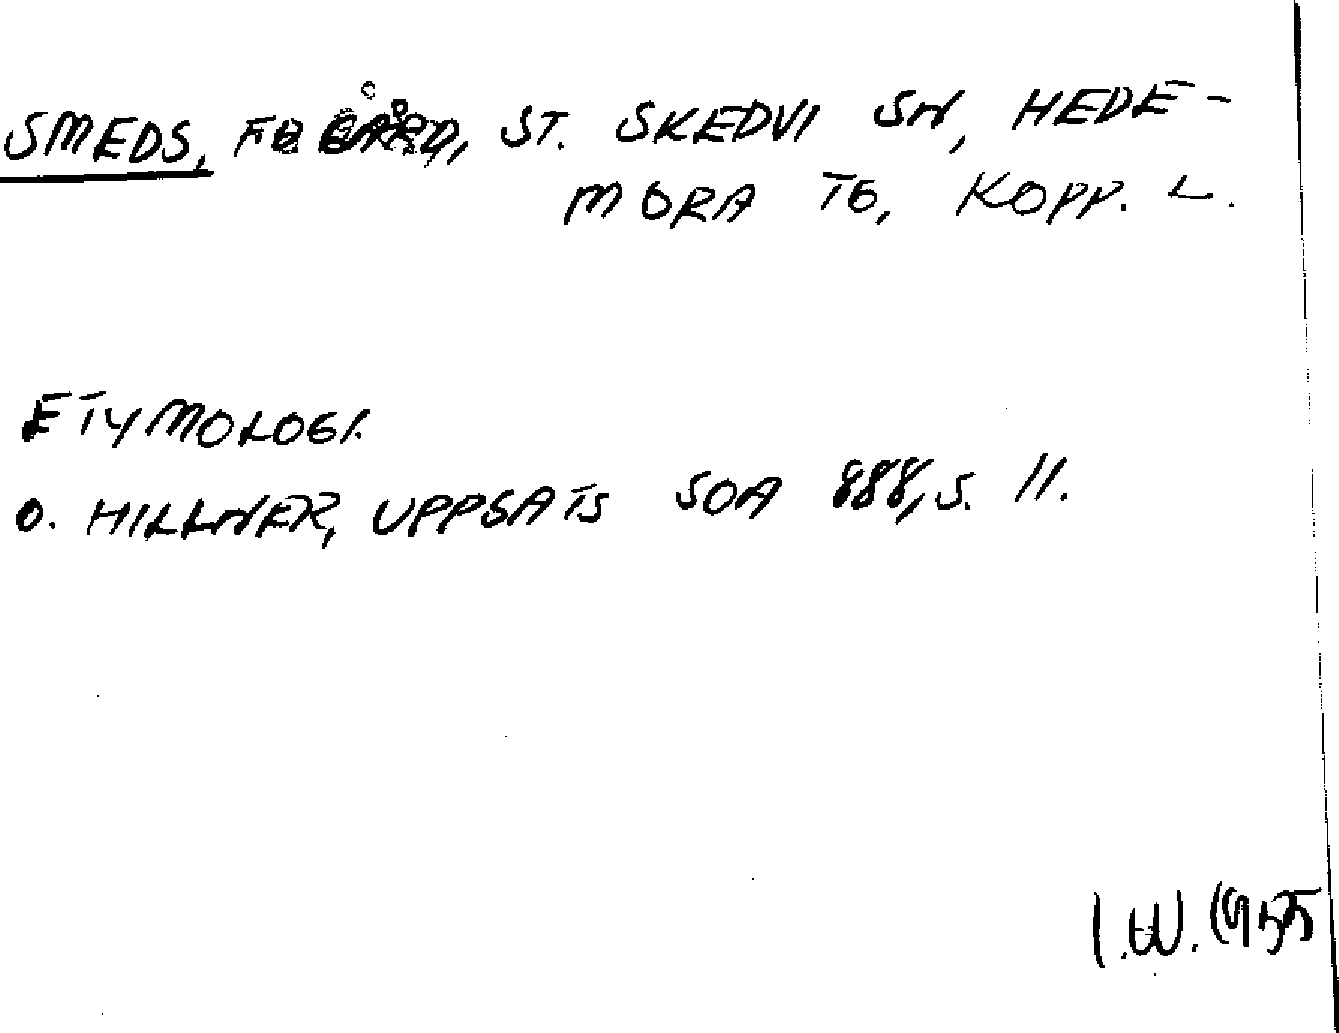 SMEDS, GÅRD, ST. SKEDVI SN, HEDE-
MORA TG, KOPP. L.
ETYMOLOGI.
O. HILLNER, UPPSATS SOA 888, S. 11.
I.W. 1955